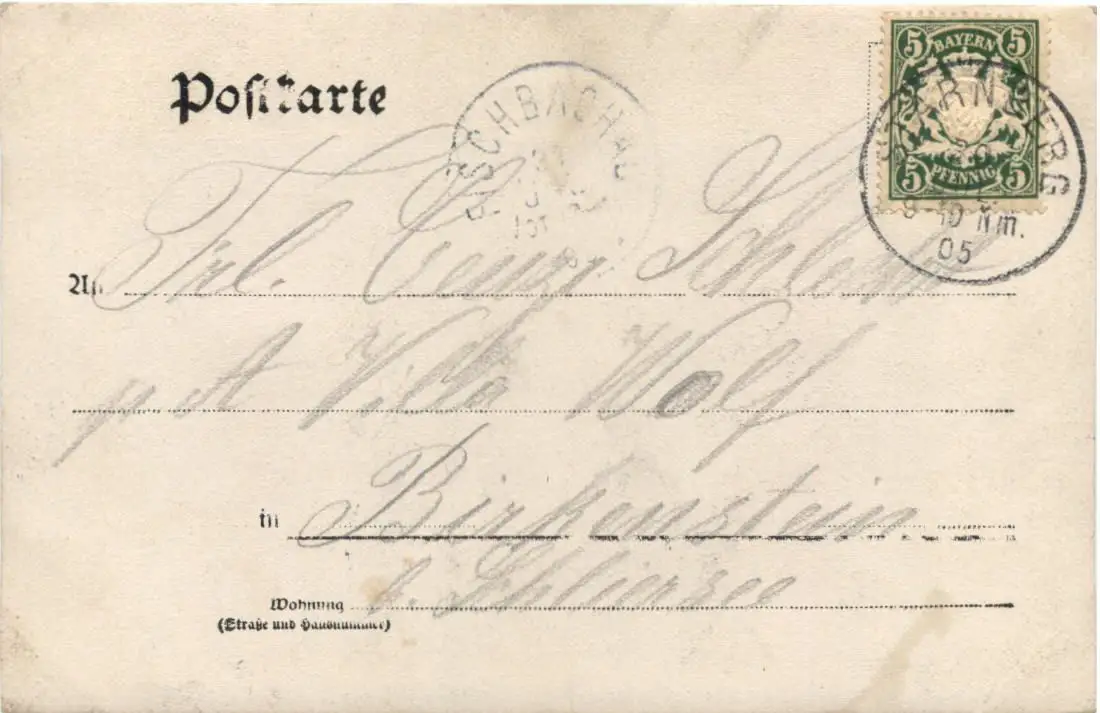 Postkarte
5 BAYERN 5
5 PFENNIG 5
STARNBERG
8-10 Nm.
05
FISCHBACHAU
An Frl. Cenzi
p A Villa Wolf
in Birkenstein
b. Schliersee
Wohnung
(Straße und Hausnummer)